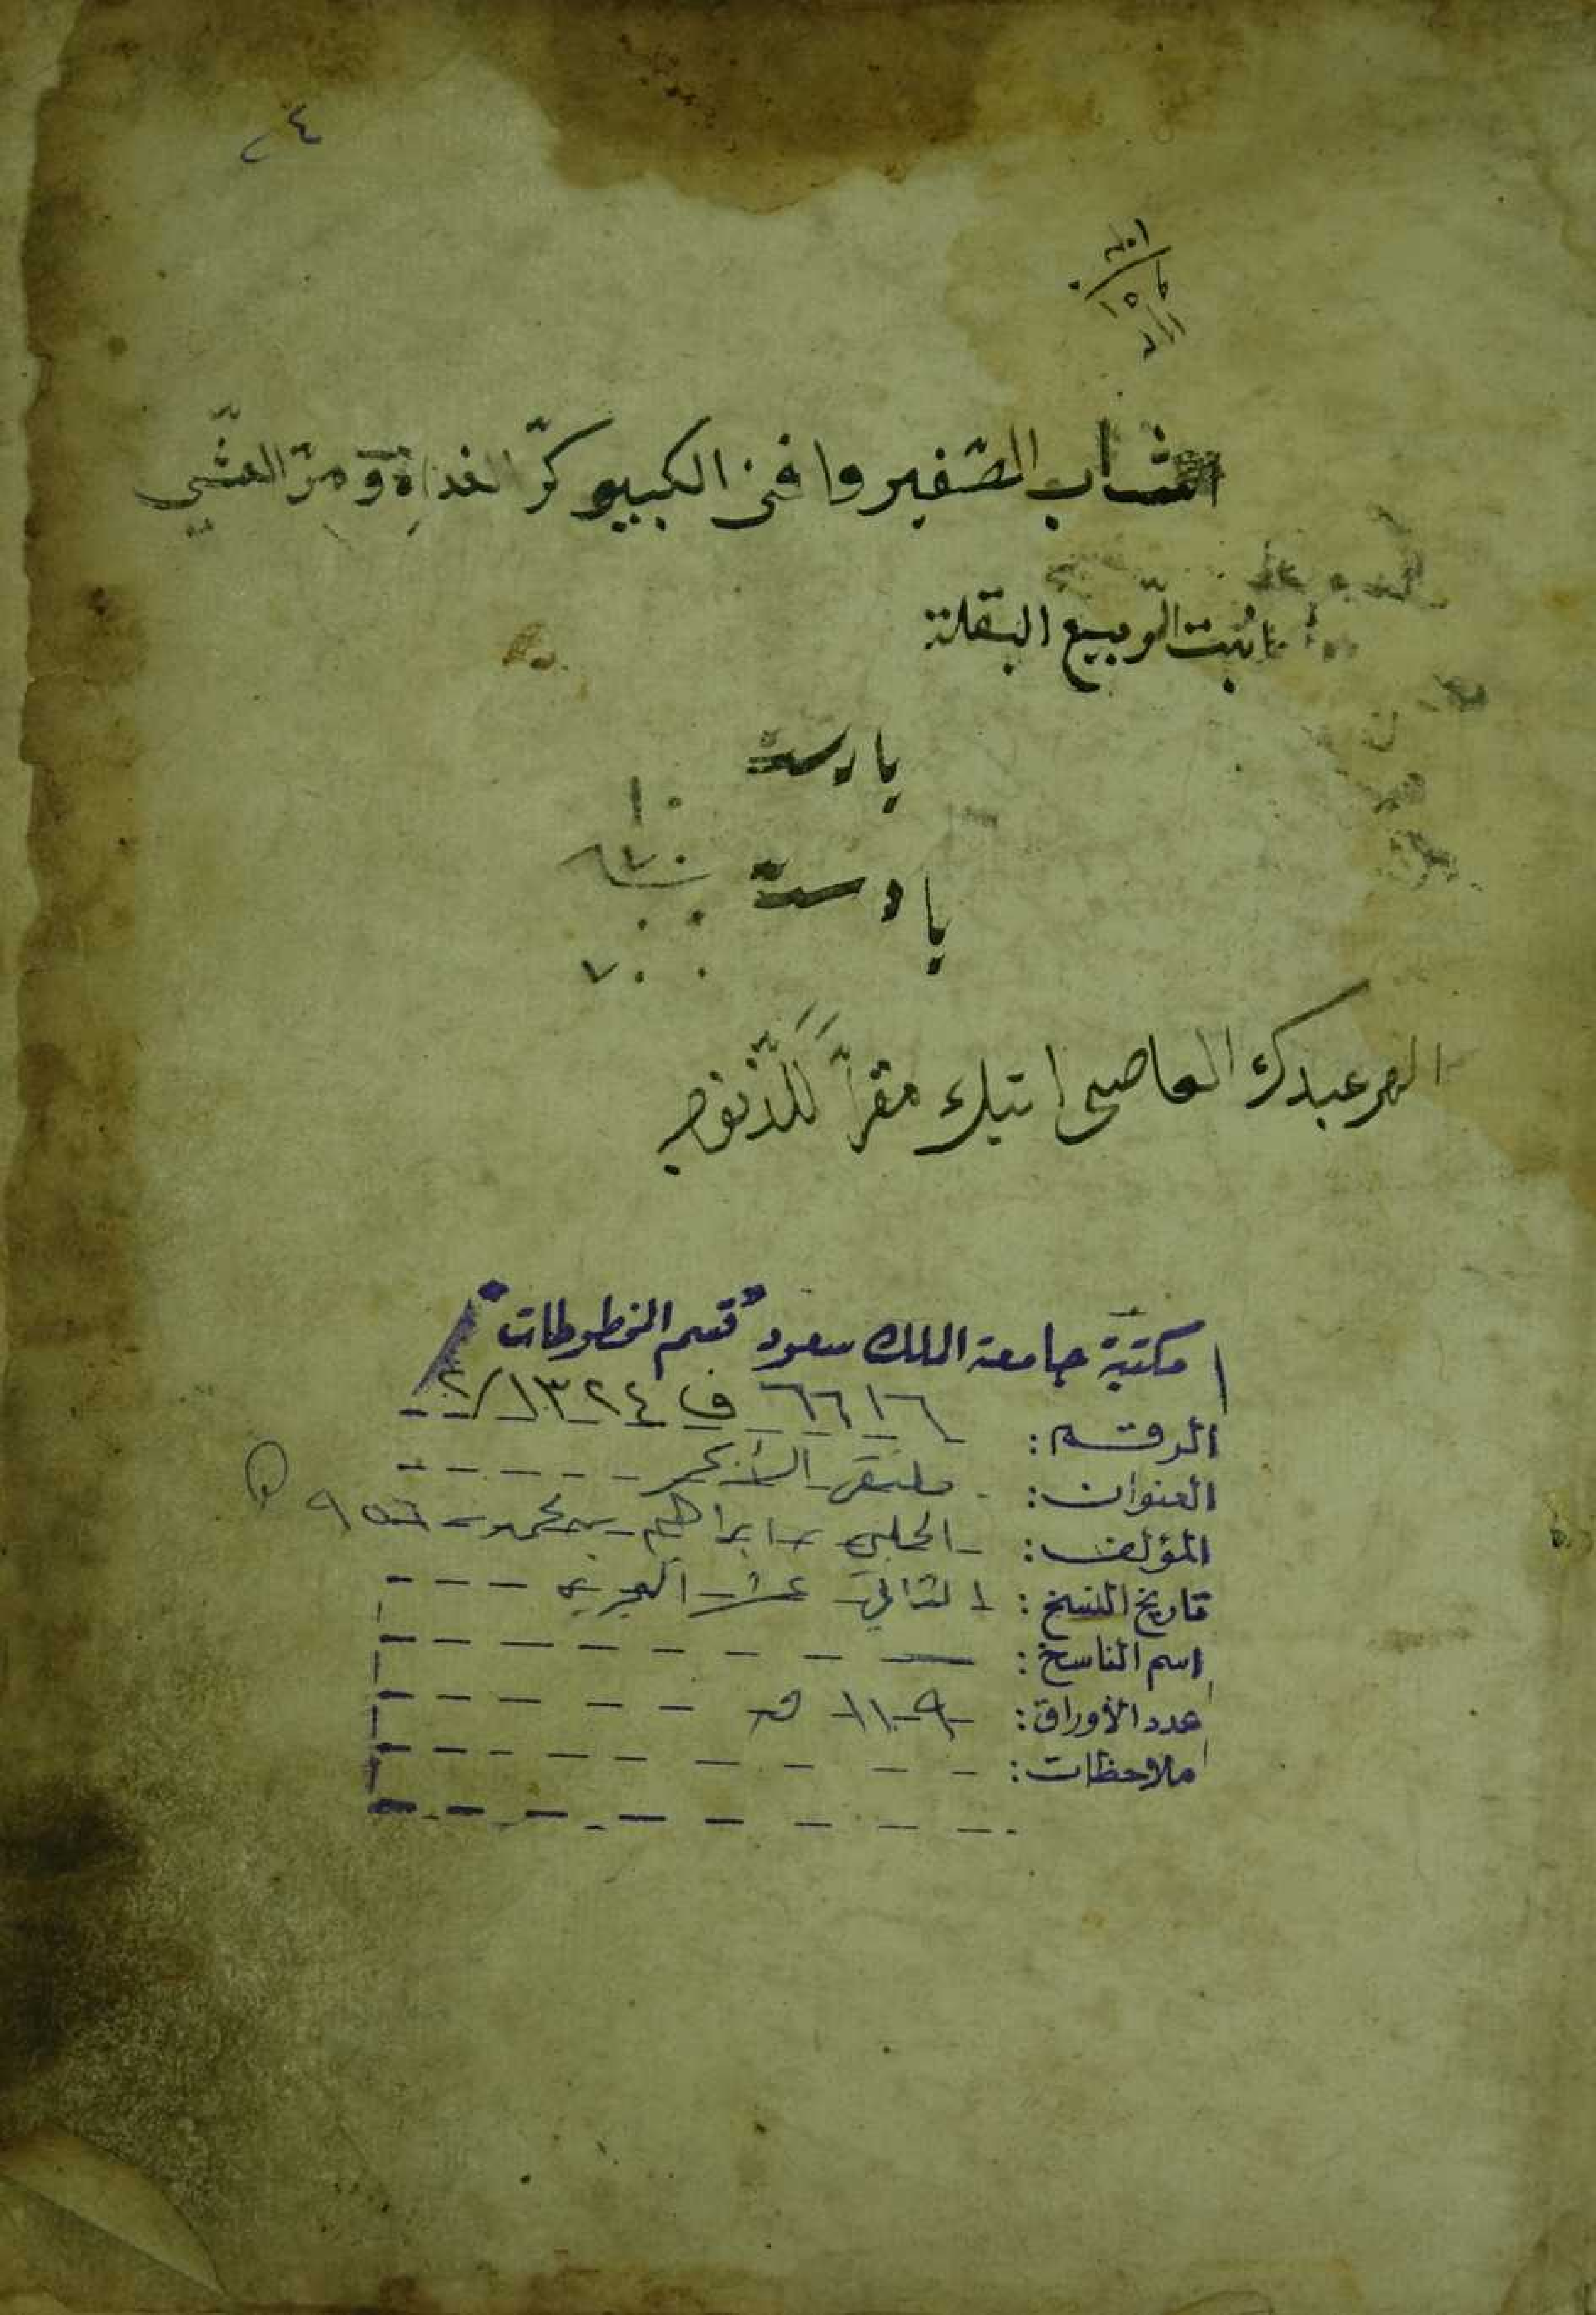 ٢٤
اشاب الصغير وافنى الكبير كرّ الغداة ومرّ العشي
انبت الرّبيع البقلة
يا رست
١٠
يا دست
٦٧٠
٧٠٠
الهى عبدك العاصى اتيك مقرّاً للذنوب
مكتبة جامعة الملك سعود "قسم المخطوطات"
الرقم: ٦٦١٦ ف ١٣٢٤/٢
العنوان: ملتقى الأبحر
المؤلف: الحلبي، ابراهيم بن محمد - ٩٥٦ هـ
تاريخ النسخ: الثاني عشر الهجري
اسم الناسخ: ——
عدد الأوراق: ١١٠٩ ق
ملاحظات: